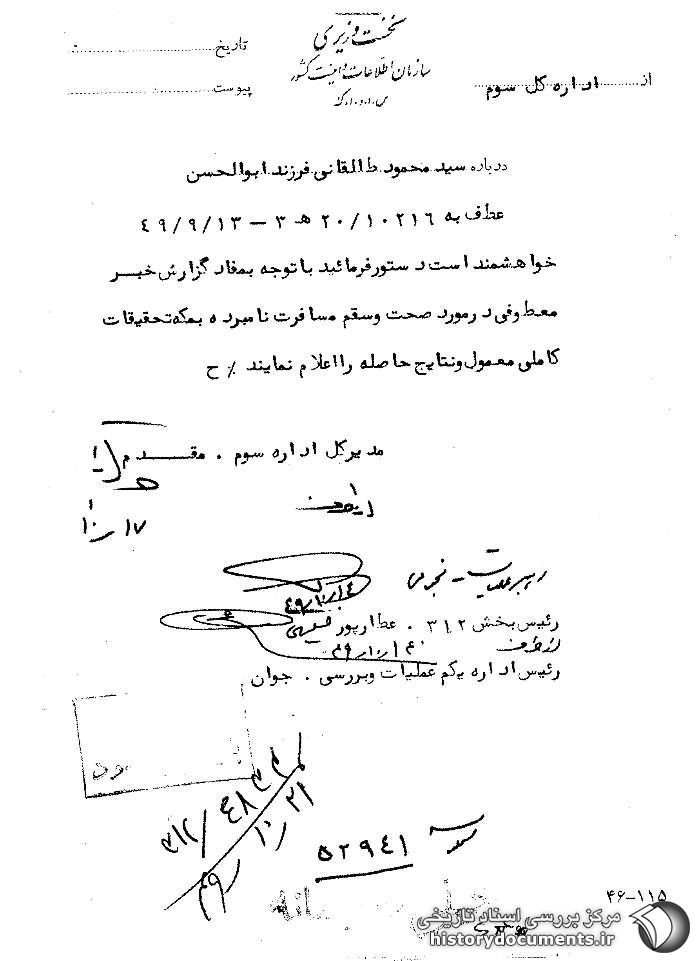 نخست وزیری
سازمان اطلاعات و امنیت کشور
س.ا.و.ا.ک
تاریخ
پیوست
از اداره کل سوم
درباره سید محمود طالقانی فرزند ابوالحسن
عطف به ۲۰/۱۰۲۱۶ هـ ۳ – ۴۹/۹/۱۳
خواهشمند است دستور فرمائید با توجه بمفاد گزارش خبر
معطوفی در مورد صحت وسقم مسافرت نامبرده بمکه تحقیقات
کاملی معمول و نتایج حاصله را اعلام نمایند ٪ ح
مدیر کل اداره سوم . مقدم
۱۷/۱۰
رهبر عملیات -
۴۹/۱۰/۱۴
رئیس بخش ۳۱۲ . عطارپور
از طرف
رئیس اداره یکم عملیات وبررسی . جوان
۳۱۲/
۴۹/۱۰/۲۱
۵۲۹۴۱
۴۶-۱۱۵
مرکز بررسی اسناد تاریخی
historydocuments.ir